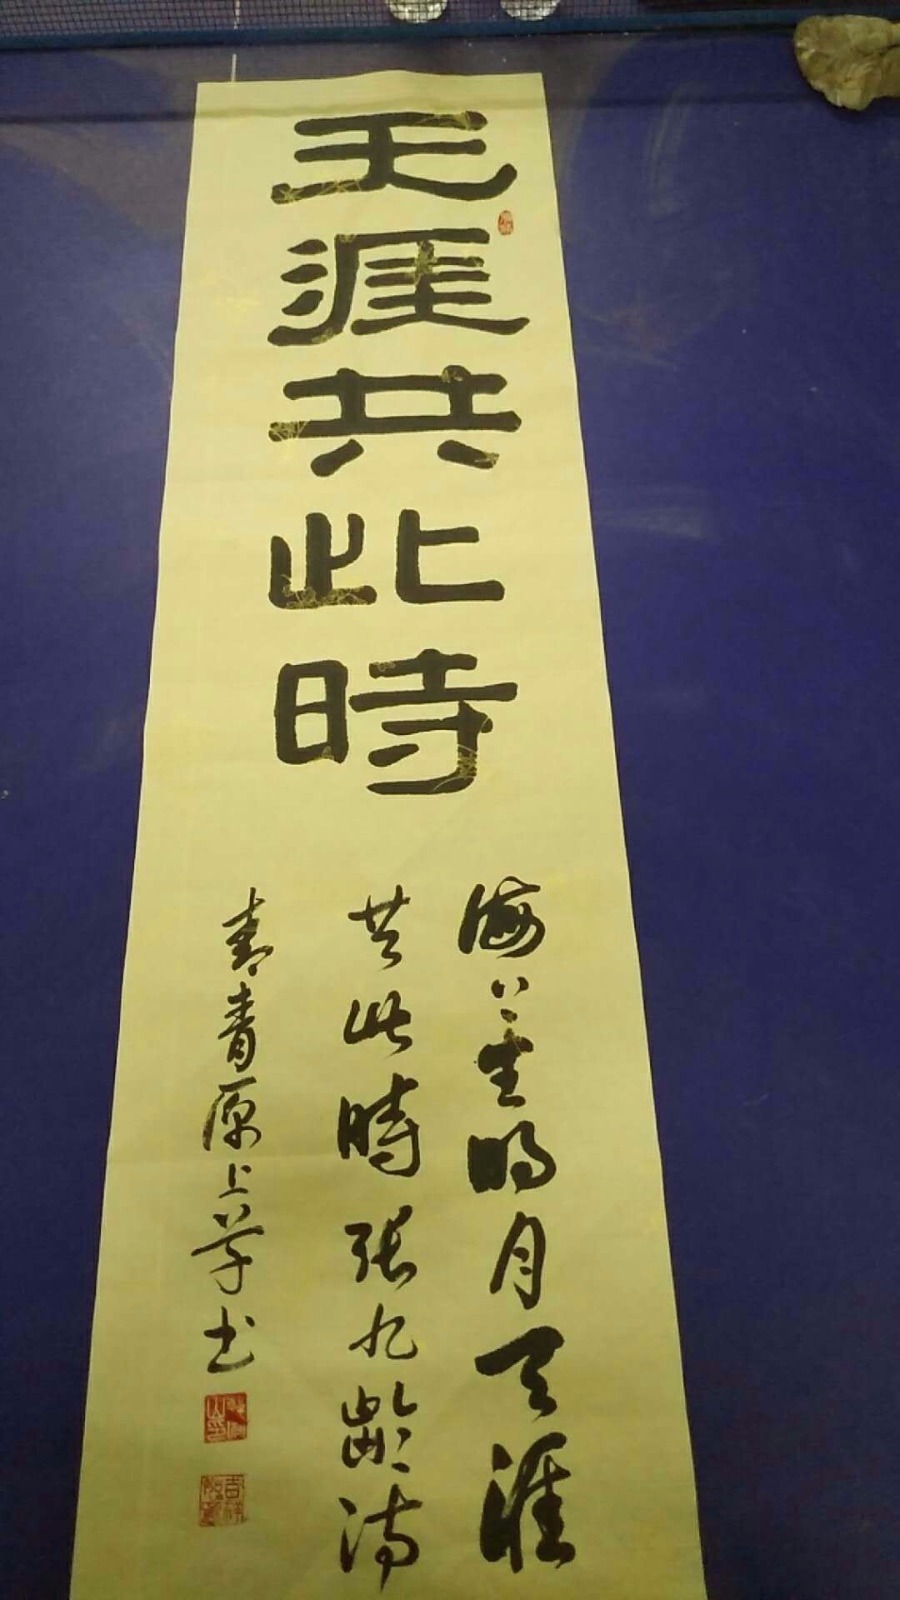 天涯共此時
海上生明月天涯
共此時張九齡詩
青青原上草书